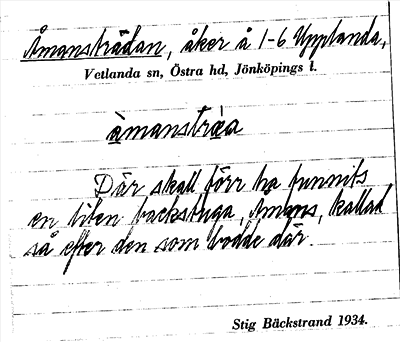 Åmansträdan, åker å 1-6 Upplanda,
Vetlanda sn, Östra hd, Jönköpings l.
åmanstræa
Där skall förr ha funnits
en liten backstuga, Amans, kallad
så efter den som bodde där.
Stig Bäckstrand 1934.